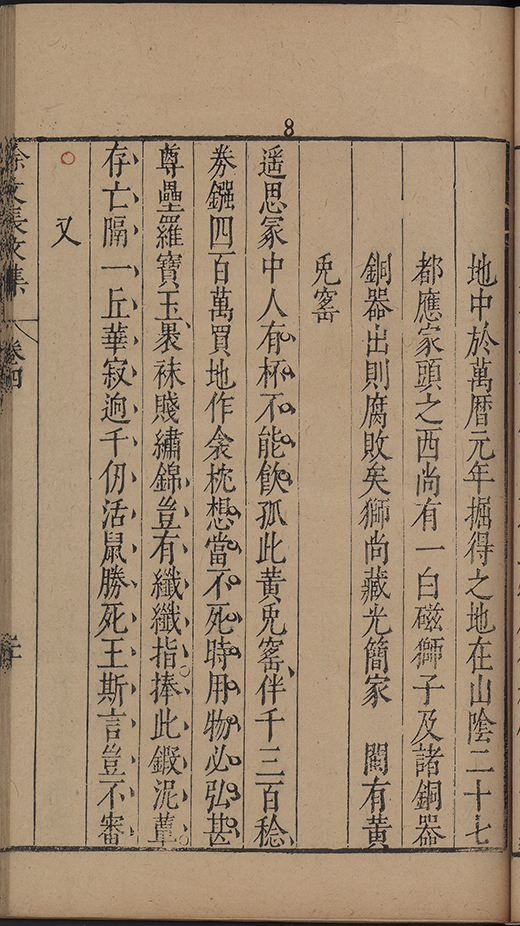 8
地中於萬曆元年掘得之地在山陰二十七
都應家頭之西尚有一白磁獅子及諸銅器
銅器出則腐敗矣獅尚藏光簡家 閩有黃
兎窰
遥思冢中人有杯不能飲孤此黃兎窰伴千三百稔
券鏹四百萬買地作衾枕想當不死時用物必弘甚
尊罍羅寶玉裹袜賤繡錦豈有纖纖指捧此鍛泥蕈
存亡隔一丘華寂逈千仞活鼠勝死王斯言豈不審
又
徐文長文集
卷四